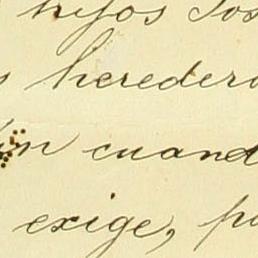 hijos Jos
heredero
n cuando
exige, pa